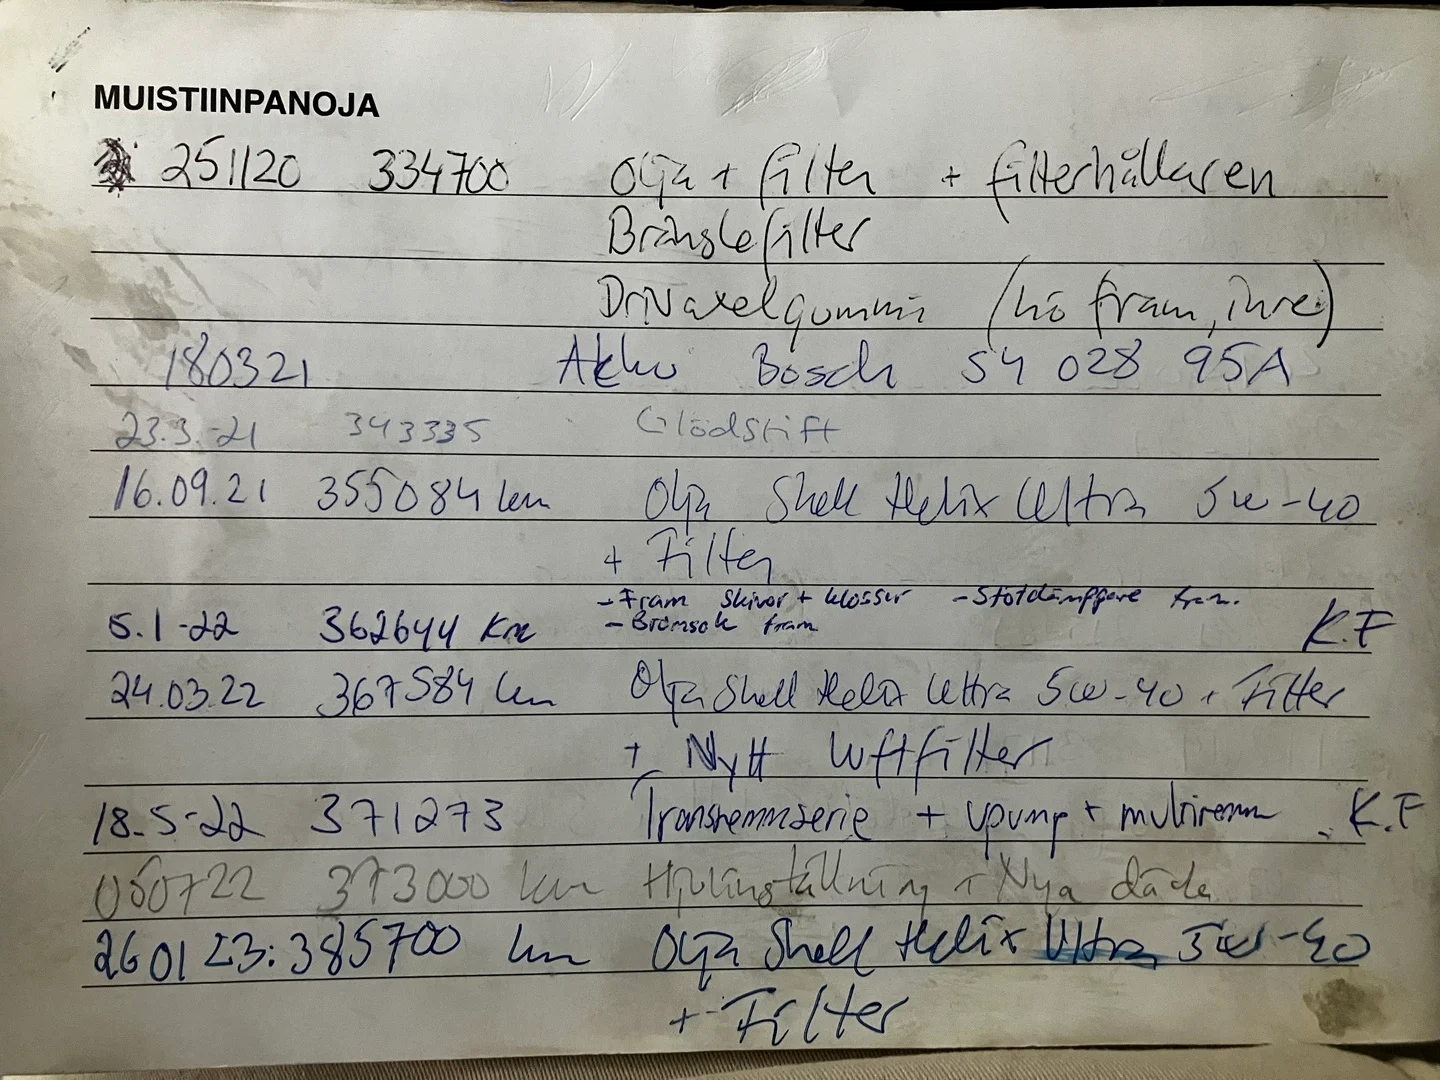 MUISTIINPANOJA
251120 334700 Olja + filter + filterhållaren
Bränslefilter
Drivaxelgummi (hö fram, inre)
180321 Akku Bosch S4 028 95A
23.3.-21 343335 Glödstift
16.09.21 355084 km Olja Shell Helix Ultra 5w-40
+ Filter
- Fram skivor + klossar - Stötdämppare fram.
5.1-22 362644 Km - Bromsok fram K.F
24.03.22 367584 km Olja Shell Helix Ultra 5w-40 + Filter
+ Nytt luftfilter
18.5-22 371273 Transremmserie + vpump + multiremm K.F
050722 373000 km Hjulinställning + Nya däck
260123: 385700 km Olja Shell Helix Ultra 5w-40
+ Filter